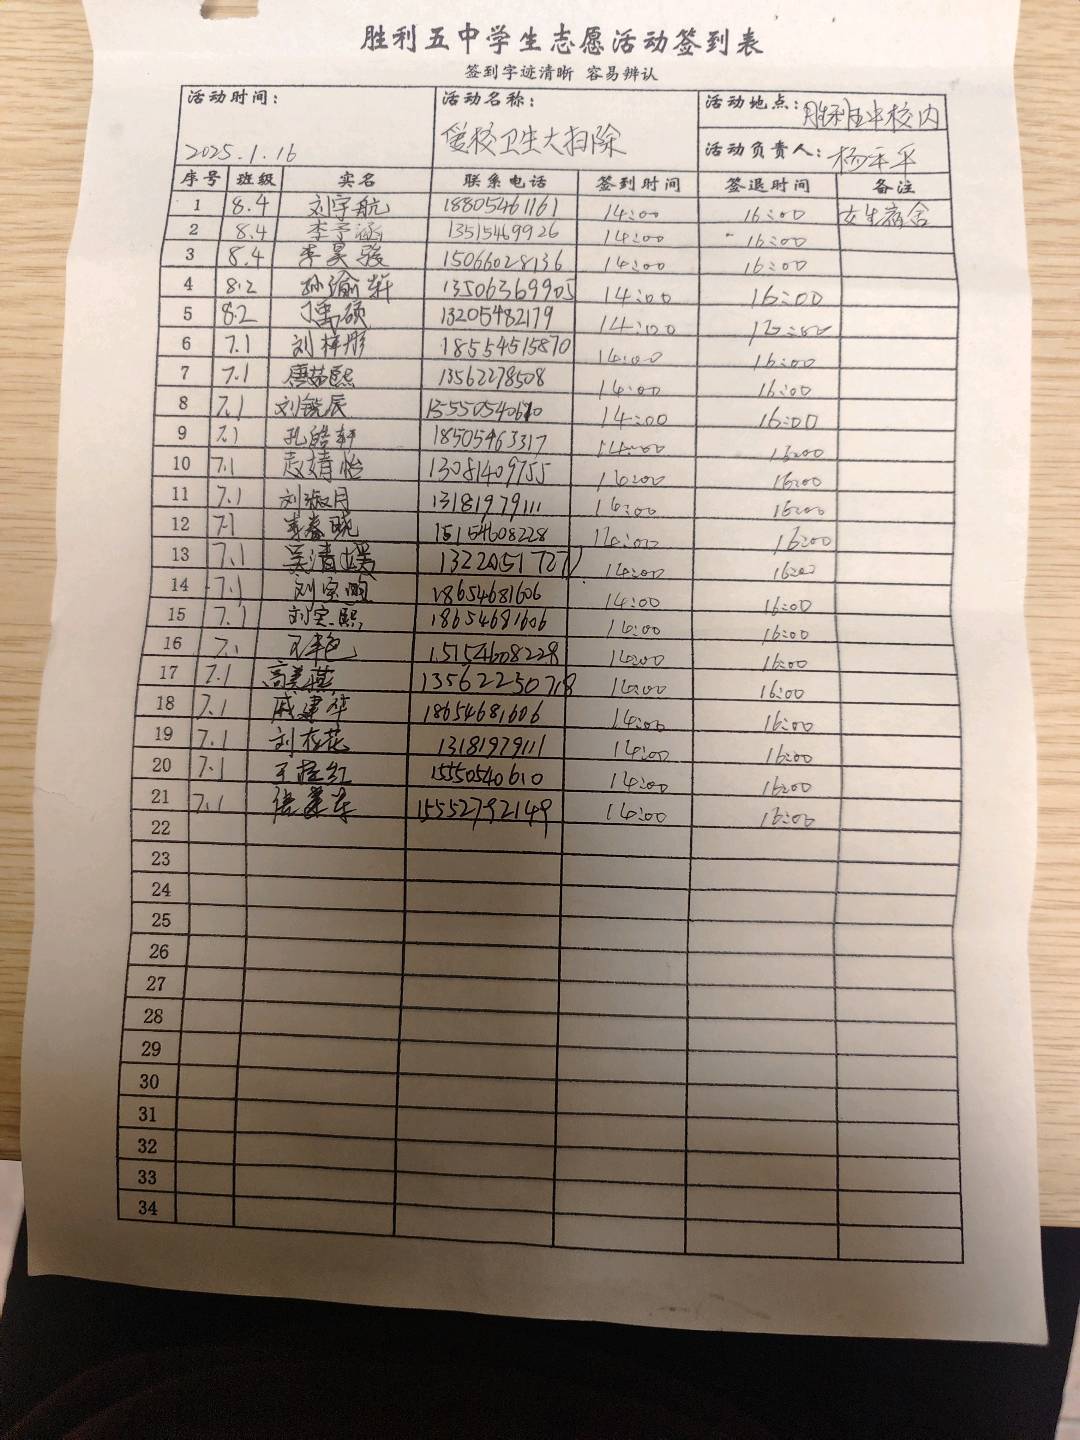 胜利五中学生志愿活动签到表
签到字迹清晰 容易辨认
活动时间： 活动名称： 活动地点：胜利五中校内
2025.1.16 爱校卫生大扫除 活动负责人：杨
序号 班级 实名 联系电话 签到时间 签退时间 备注
1 8.4 刘宇航 18805461161 14:00 16:00 女生宿舍
2 8.4 李予涵 13515469926 14:00 16:00
3 8.4 李昊骏 15066028136 14:00 16:00
4 8.2 孙渝轩 13506369905 14:00 16:00
5 8.2 禹硕 13205482179 14:00 16:00
6 7.1 刘梓彤 18554515870 14:00 16:00
7 7.1 唐喆熙 13562278508 14:00 16:00
8 7.1 刘锐辰 14:00 16:00
9 7.1 孔皓轩 18505463317 14:00 16:00
10 7.1 赵靖怡 13081409755 14:00 16:00
11 7.1 刘淑月 13181979111 14:00 16:00
12 7.1 15154608228 14:00 16:00
13 7.1 吴清媛 14:00 16:00
14 7.1 18654681606 14:00 16:00
15 7.1 刘实熙 18654681606 14:00 16:00
16 7.1 15154608228 14:00 16:00
17 7.1 高美蕻 14:00 16:00
18 7.1 戚建华 18654681606 14:00 16:00
19 7.1 刘存花 13181979111 14:00 16:00
20 7.1 15550540610 14:00 16:00
21 7.1 15552792149 14:00 16:00
22
23
24
25
26
27
28
29
30
31
32
33
34